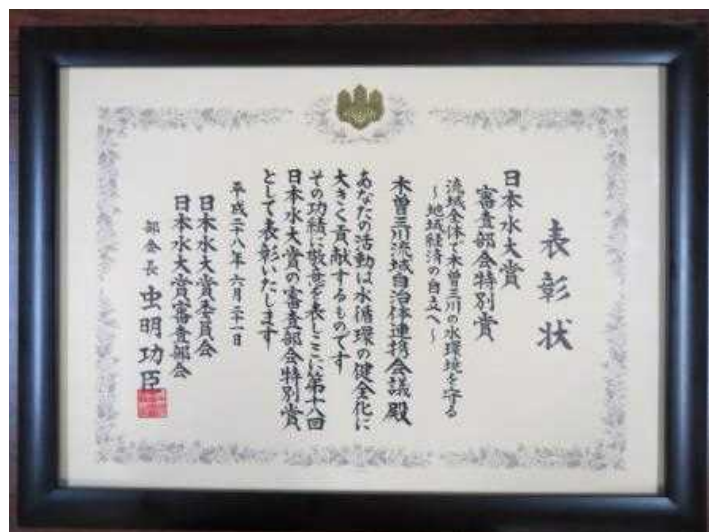 表彰状
日本水大賞
審査部会特別賞
流域全体で木曽三川の水環境を守る
~地域経済の自立へ~
木曽三川流域自治体連携会議殿
あなたの活動は水循環の健全化に
大きく貢献するものです
その功績に敬意を表しここに第十八回
日本水大賞の審査部会特別賞
として表彰いたします
平成二十八年六月二十一日
日本水大賞委員会
日本水大賞審査部会
部会長 虫明功臣